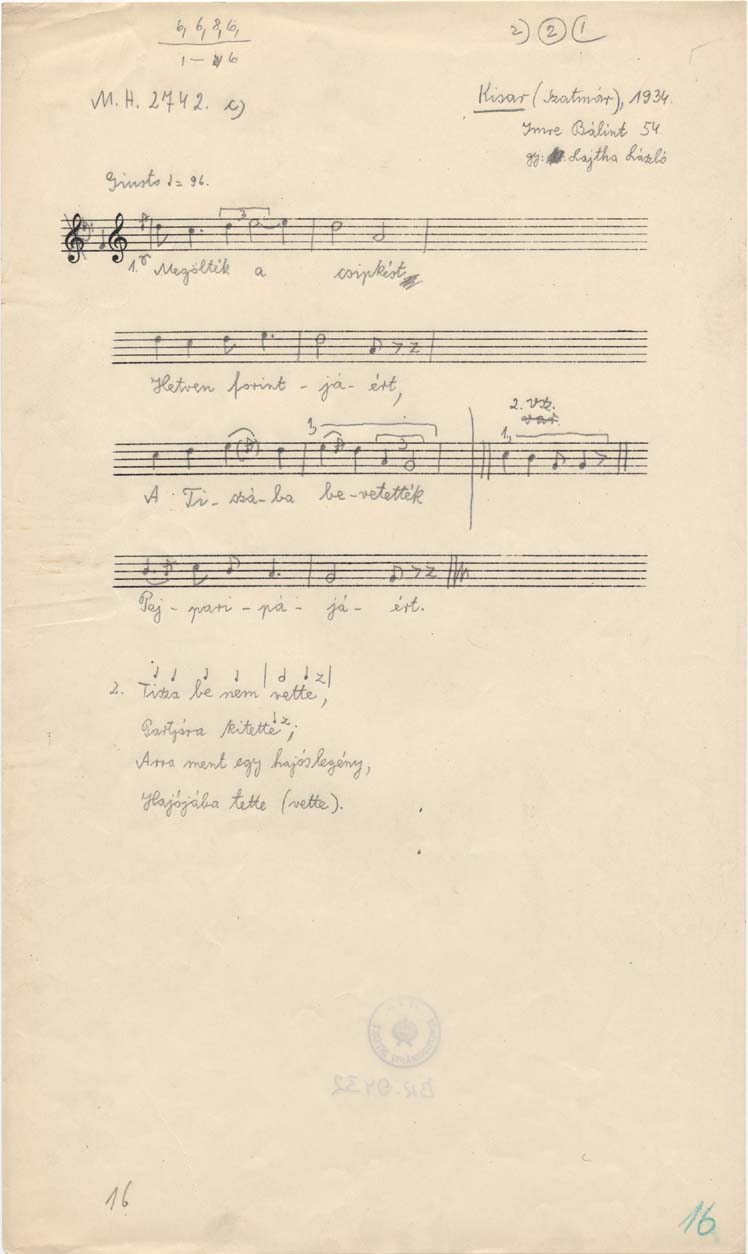 6, 6, 8, 6,
1 — 6
2) 2 1
M. H. 2742. c)
Kisar (Szatmár), 1934.
Imre Bálint 54.
gy: Lajtha László
Giusto ♩= 96.
3
1. Megölték a csipkést
Hetven forint - já - ért,
2. vsz.
3
A Ti - szá - ba be - vetették
Pej - pari - pá - já - ért.
2. Tisza be nem vette,
Partjára kitette;
Arra ment egy hajóslegény,
Hajójába tette (vette).
16
16